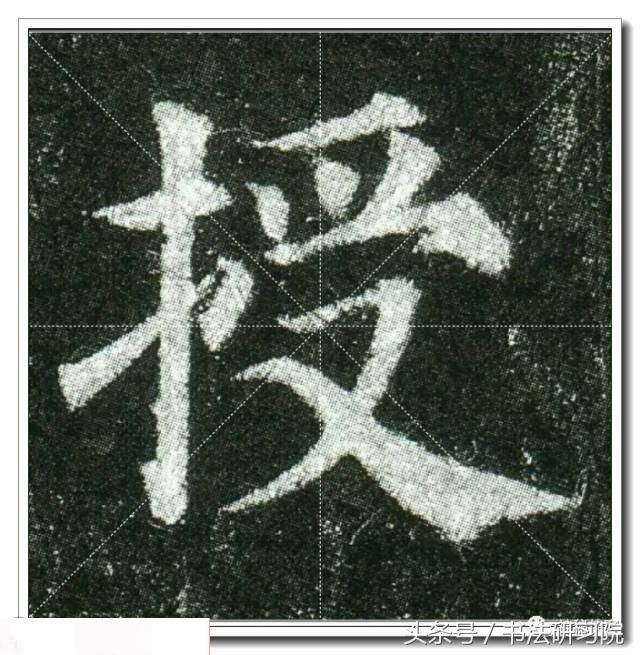 授
头条号 / 书法研习院